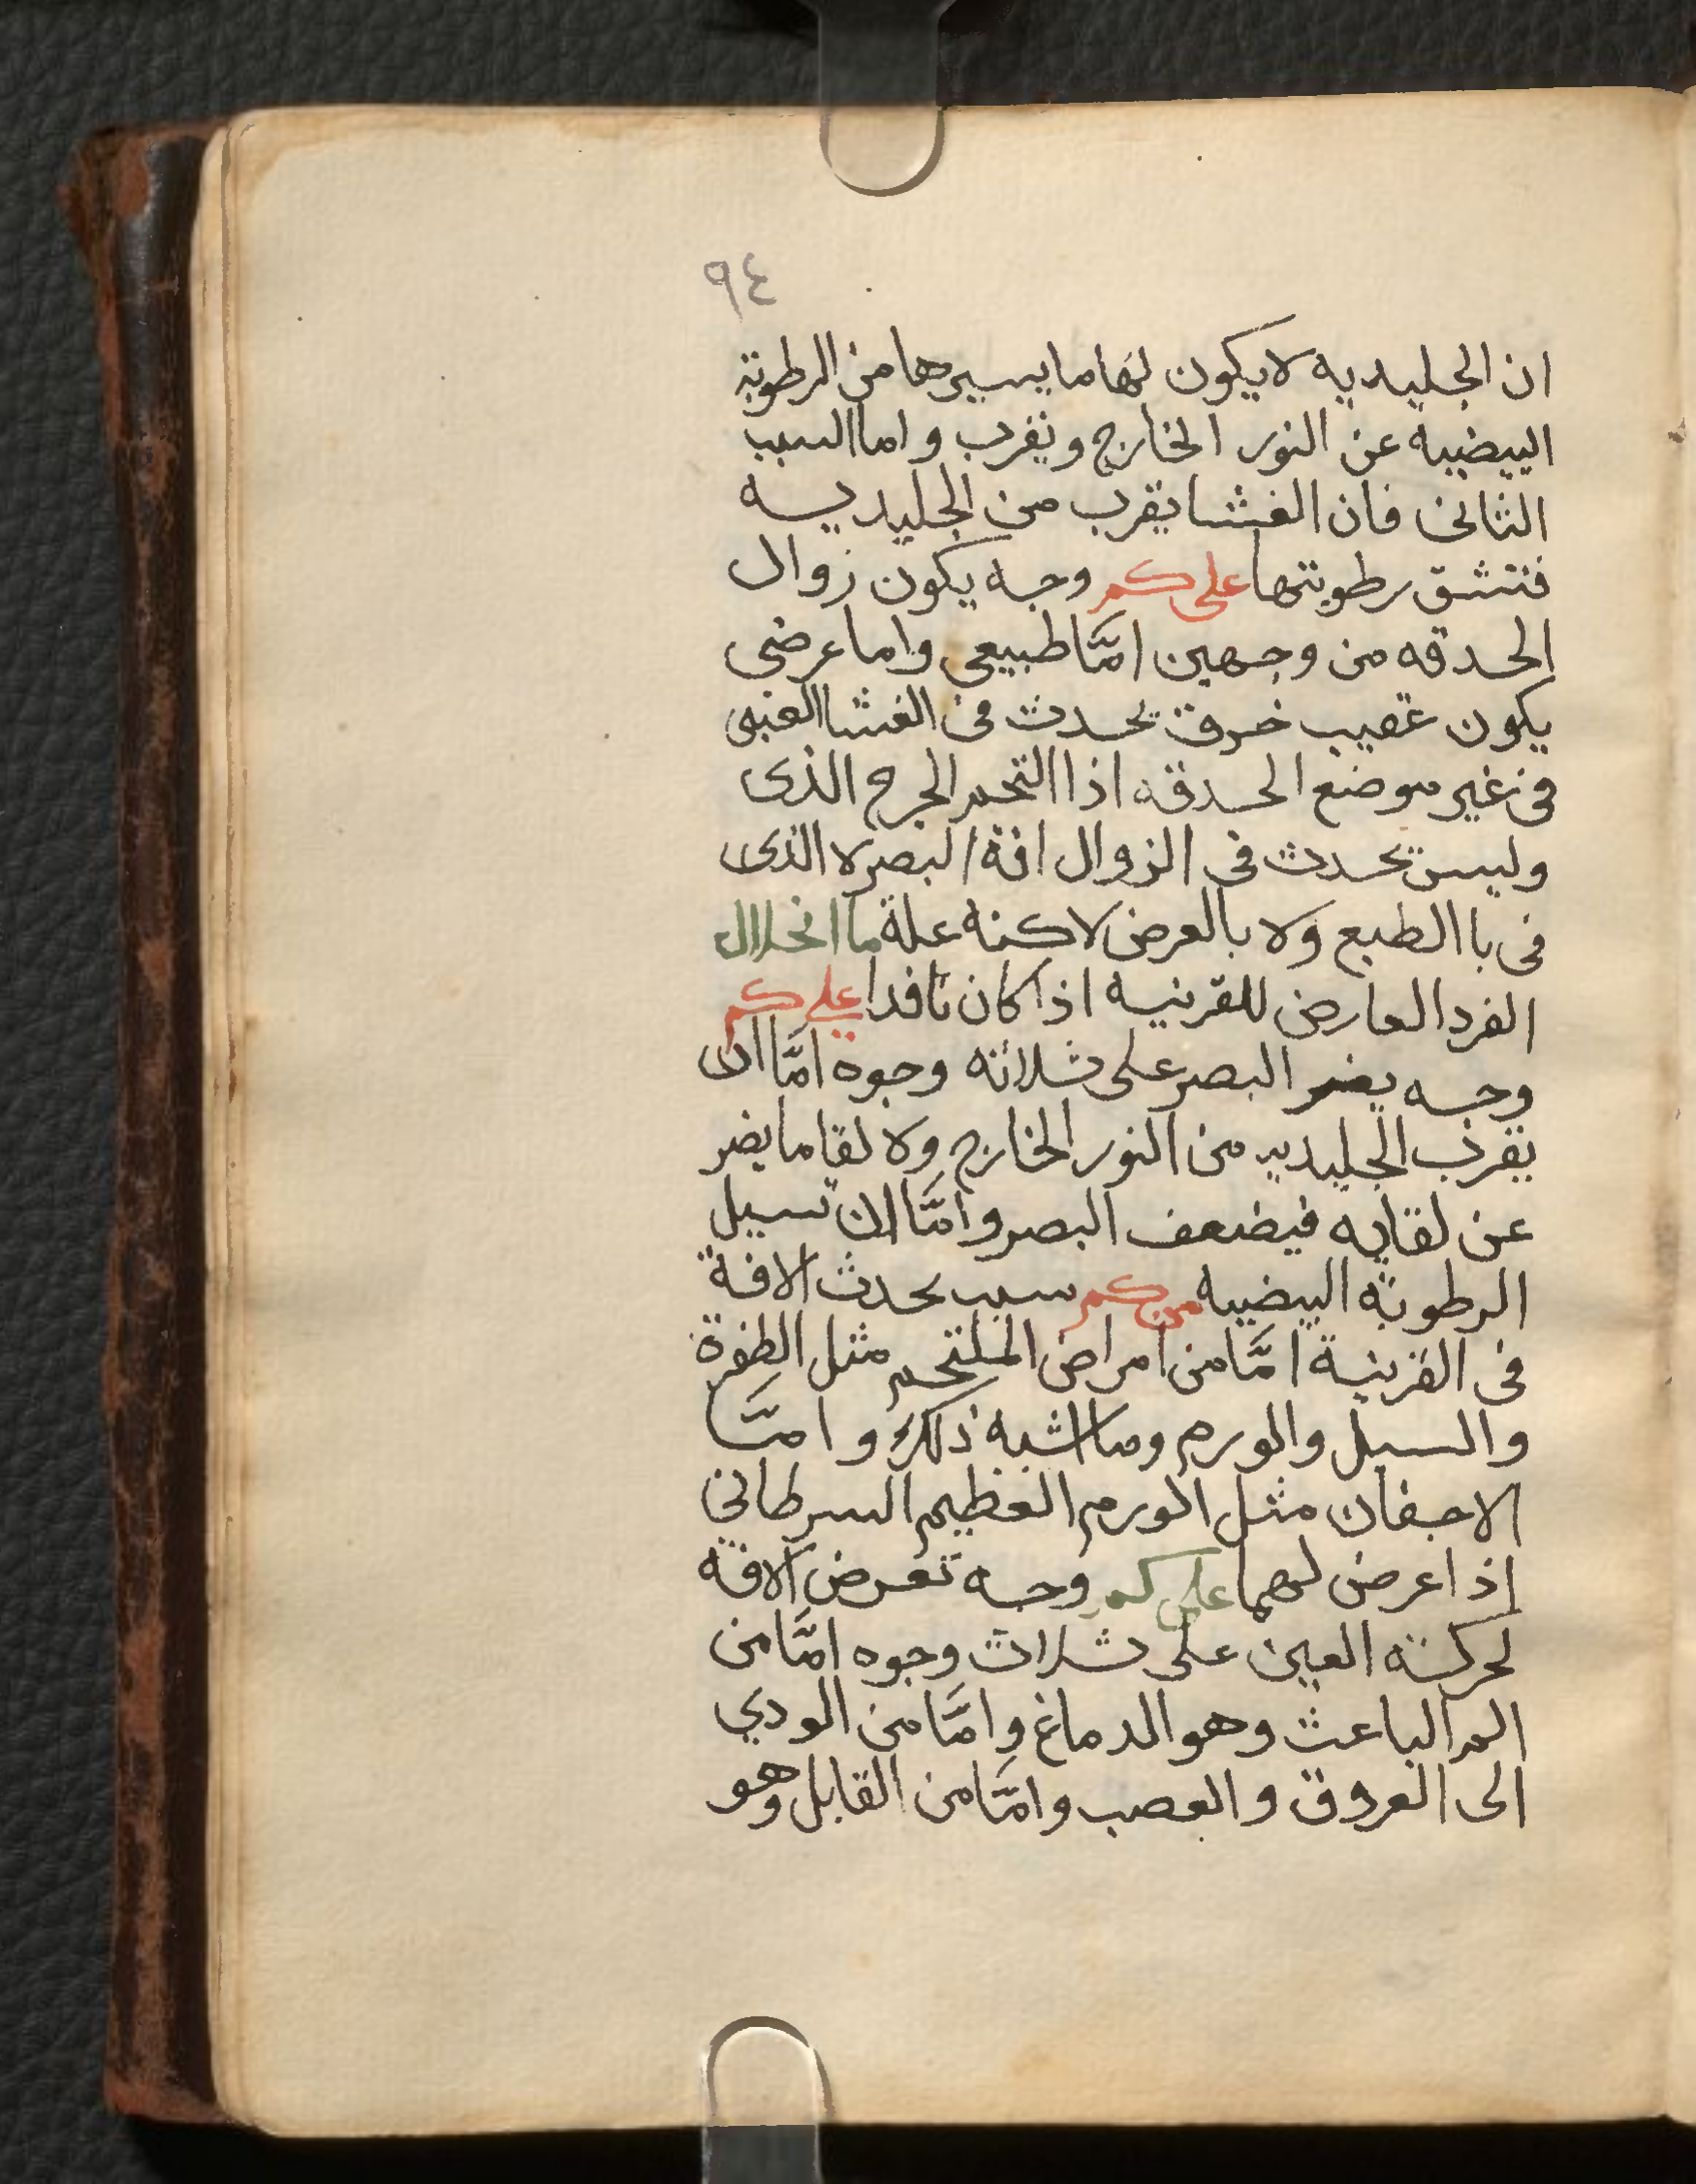 ٩٤
ان الجليديه لا يكون لها ما يسيرها من الرطوبة
البيضيه عن النور الخارج ونفرب واما السبب
الثانى فان الغشا يقرب من الجليديه
فتنشق رطوبتها على كم وجه يكون زوال
الحدقه من وجهين امَّا طبيعى واما عرضى
يكون عقيب خرق يحدث فى الغشا العنبى
فى غير موضع الحدقه اذا التحم الجرح الذى
وليس يحدث فى الزوال افة البصر لا الذى
فى با الطبع ولا بالعرض لاكنه علة ما انحلال
الفرد العارض للقرنيه اذا كان نافدا على كم
وجه يضر البصر على ثلاثه وجوه امَّا ان
يقرب الجليديه من النور الخارج ولا لقا ما يضر
عن لقايه فيضعف البصر وامَّا ان تسيل
الرطوبة البيضيه من كم سبب يحدث الافة
فى القرنية امَّا من امراض الملتحم مثل الظفرة
والسبل والورم وما اشبه ذلك وامَّا
الاجفان مثل الورم العظيم السرطانى
اذا عرض لهما على كم وجه تعرض الافه
لحركة العين على ثلاث وجوه امَّا من
المر الباعث وهو الدماغ وامَّا من الودي
الى العروق والعصب وامَّا من القابل وهو